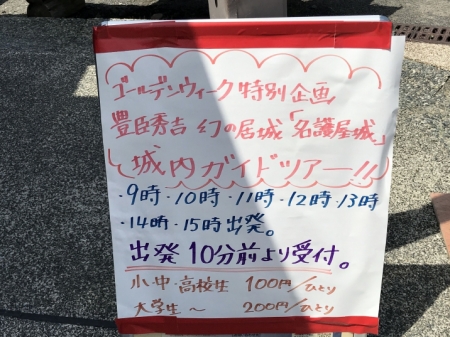 ゴールデンウィーク特別企画
豊臣秀吉 幻の居城「名護屋城」
城内ガイドツアー!!
・9時・10時・11時・12時・13時
・14時・15時出発。
出発10分前より受付。
小・中・高校生 100円/ひとり
大学生〜 200円/ひとり